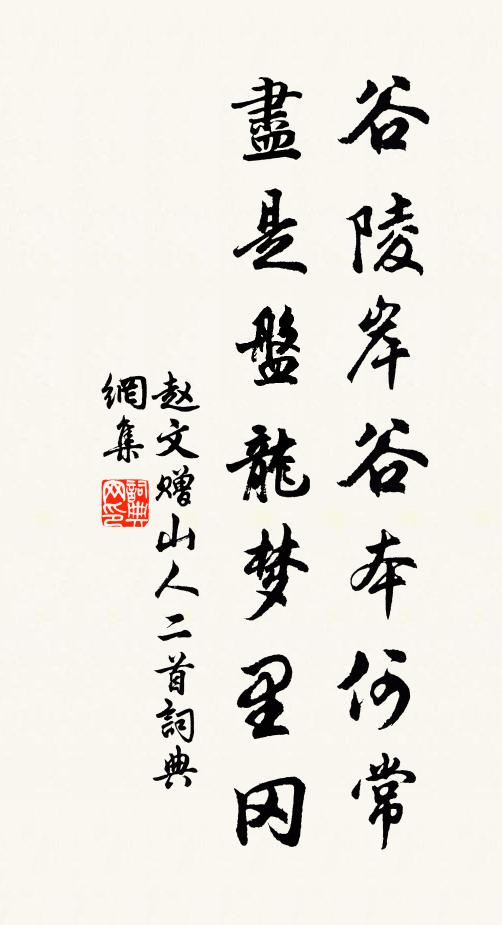 谷陵岸谷本何常
盡是盤龍梦里冈
赵文赠山人二首詞典
網集
詞典
网印